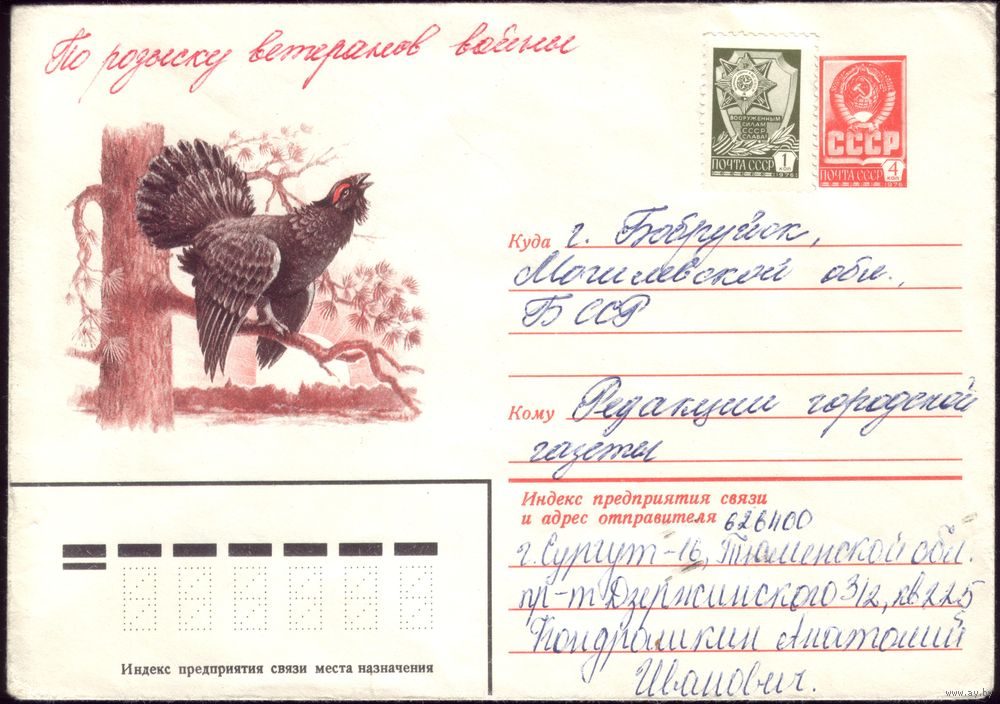 По розыску ветеранов войны
ВООРУЖЕННЫМ
СИЛАМ
СССР
СЛАВА!
ПОЧТА СССР 1 КОП
1976
СССР
ПОЧТА СССР 4 КОП
1976
Куда г. Бобруйск,
Могилевской обл.,
БССР
Кому Редакции городской
газеты
Индекс предприятия связи
и адрес отправителя 626400
г. Сургут-16, Тюменской обл.
пр-т Дзержинского 3/2, кв 225
Кондрашкин Анатолий
Иванович.
Индекс предприятия связи места назначения
www.ay.by